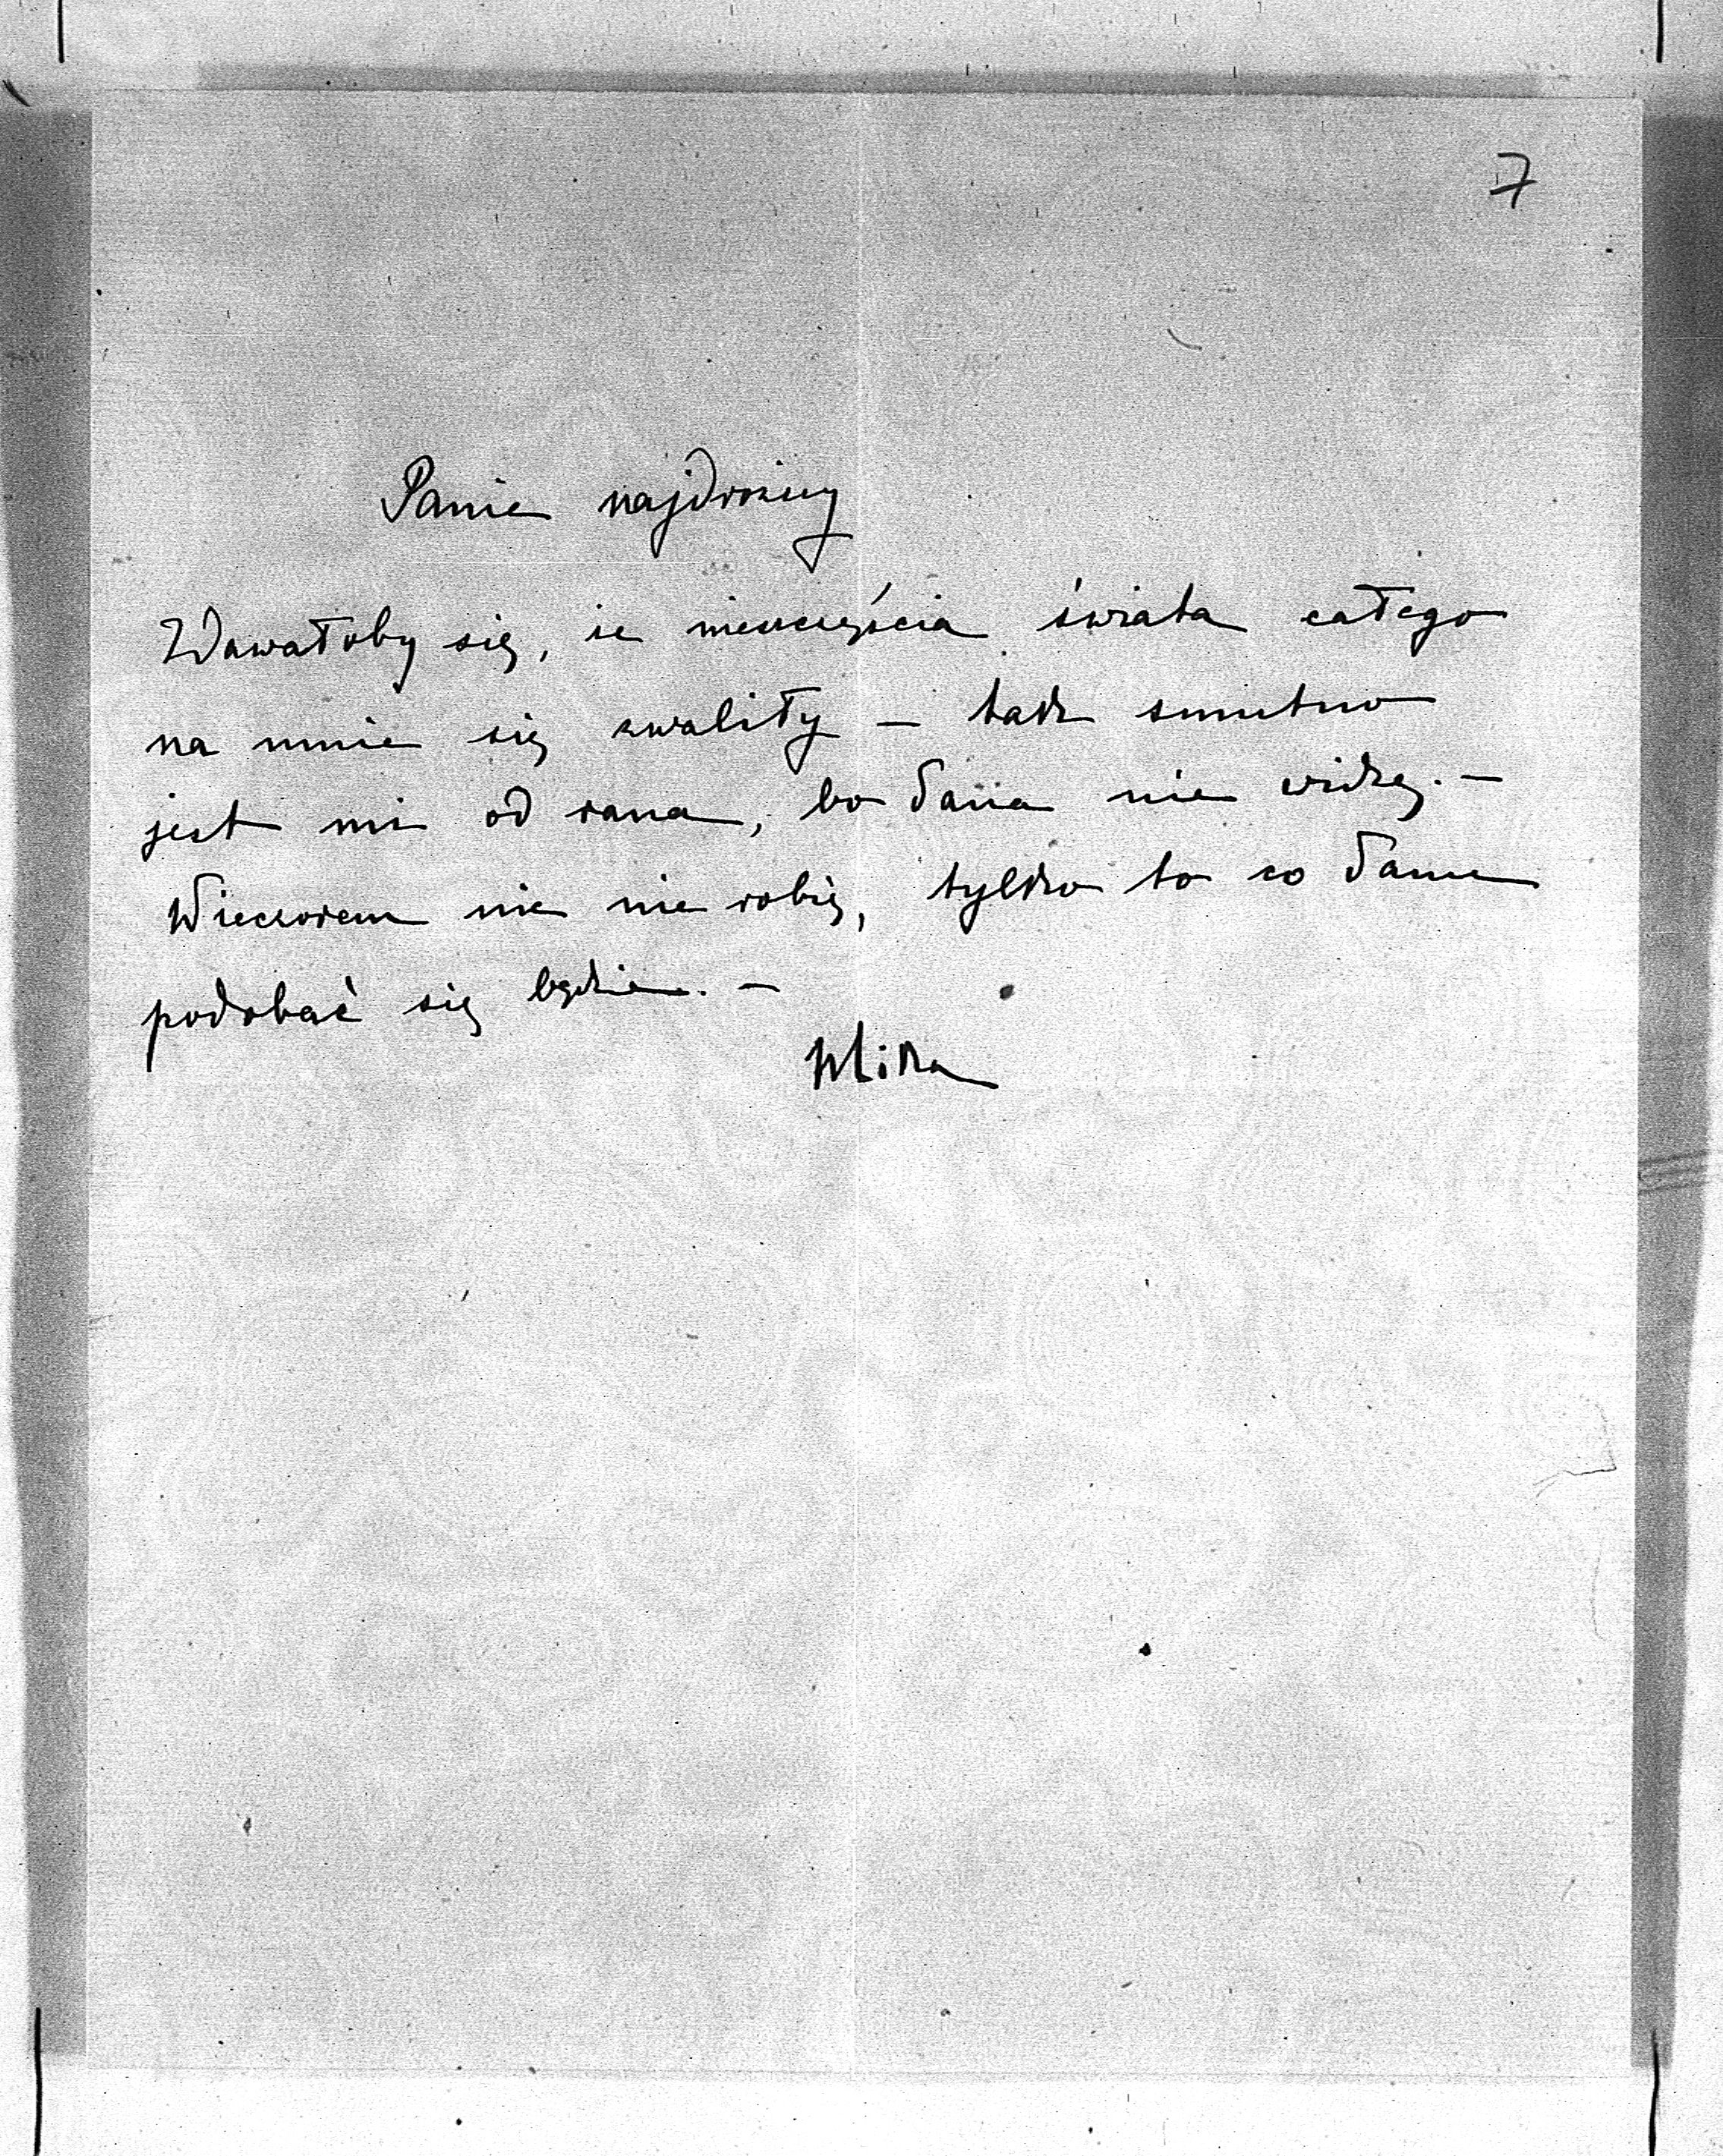 7
Panie najdroższy
Zdawałoby się, że nieszczęścia świata całego
na mnie się zwaliły – tak smutno
jest mi od rana, bo Pana nie widzę. –
Wieczorem nic nie robię, tylko to co Panu
podobać się będzie. –